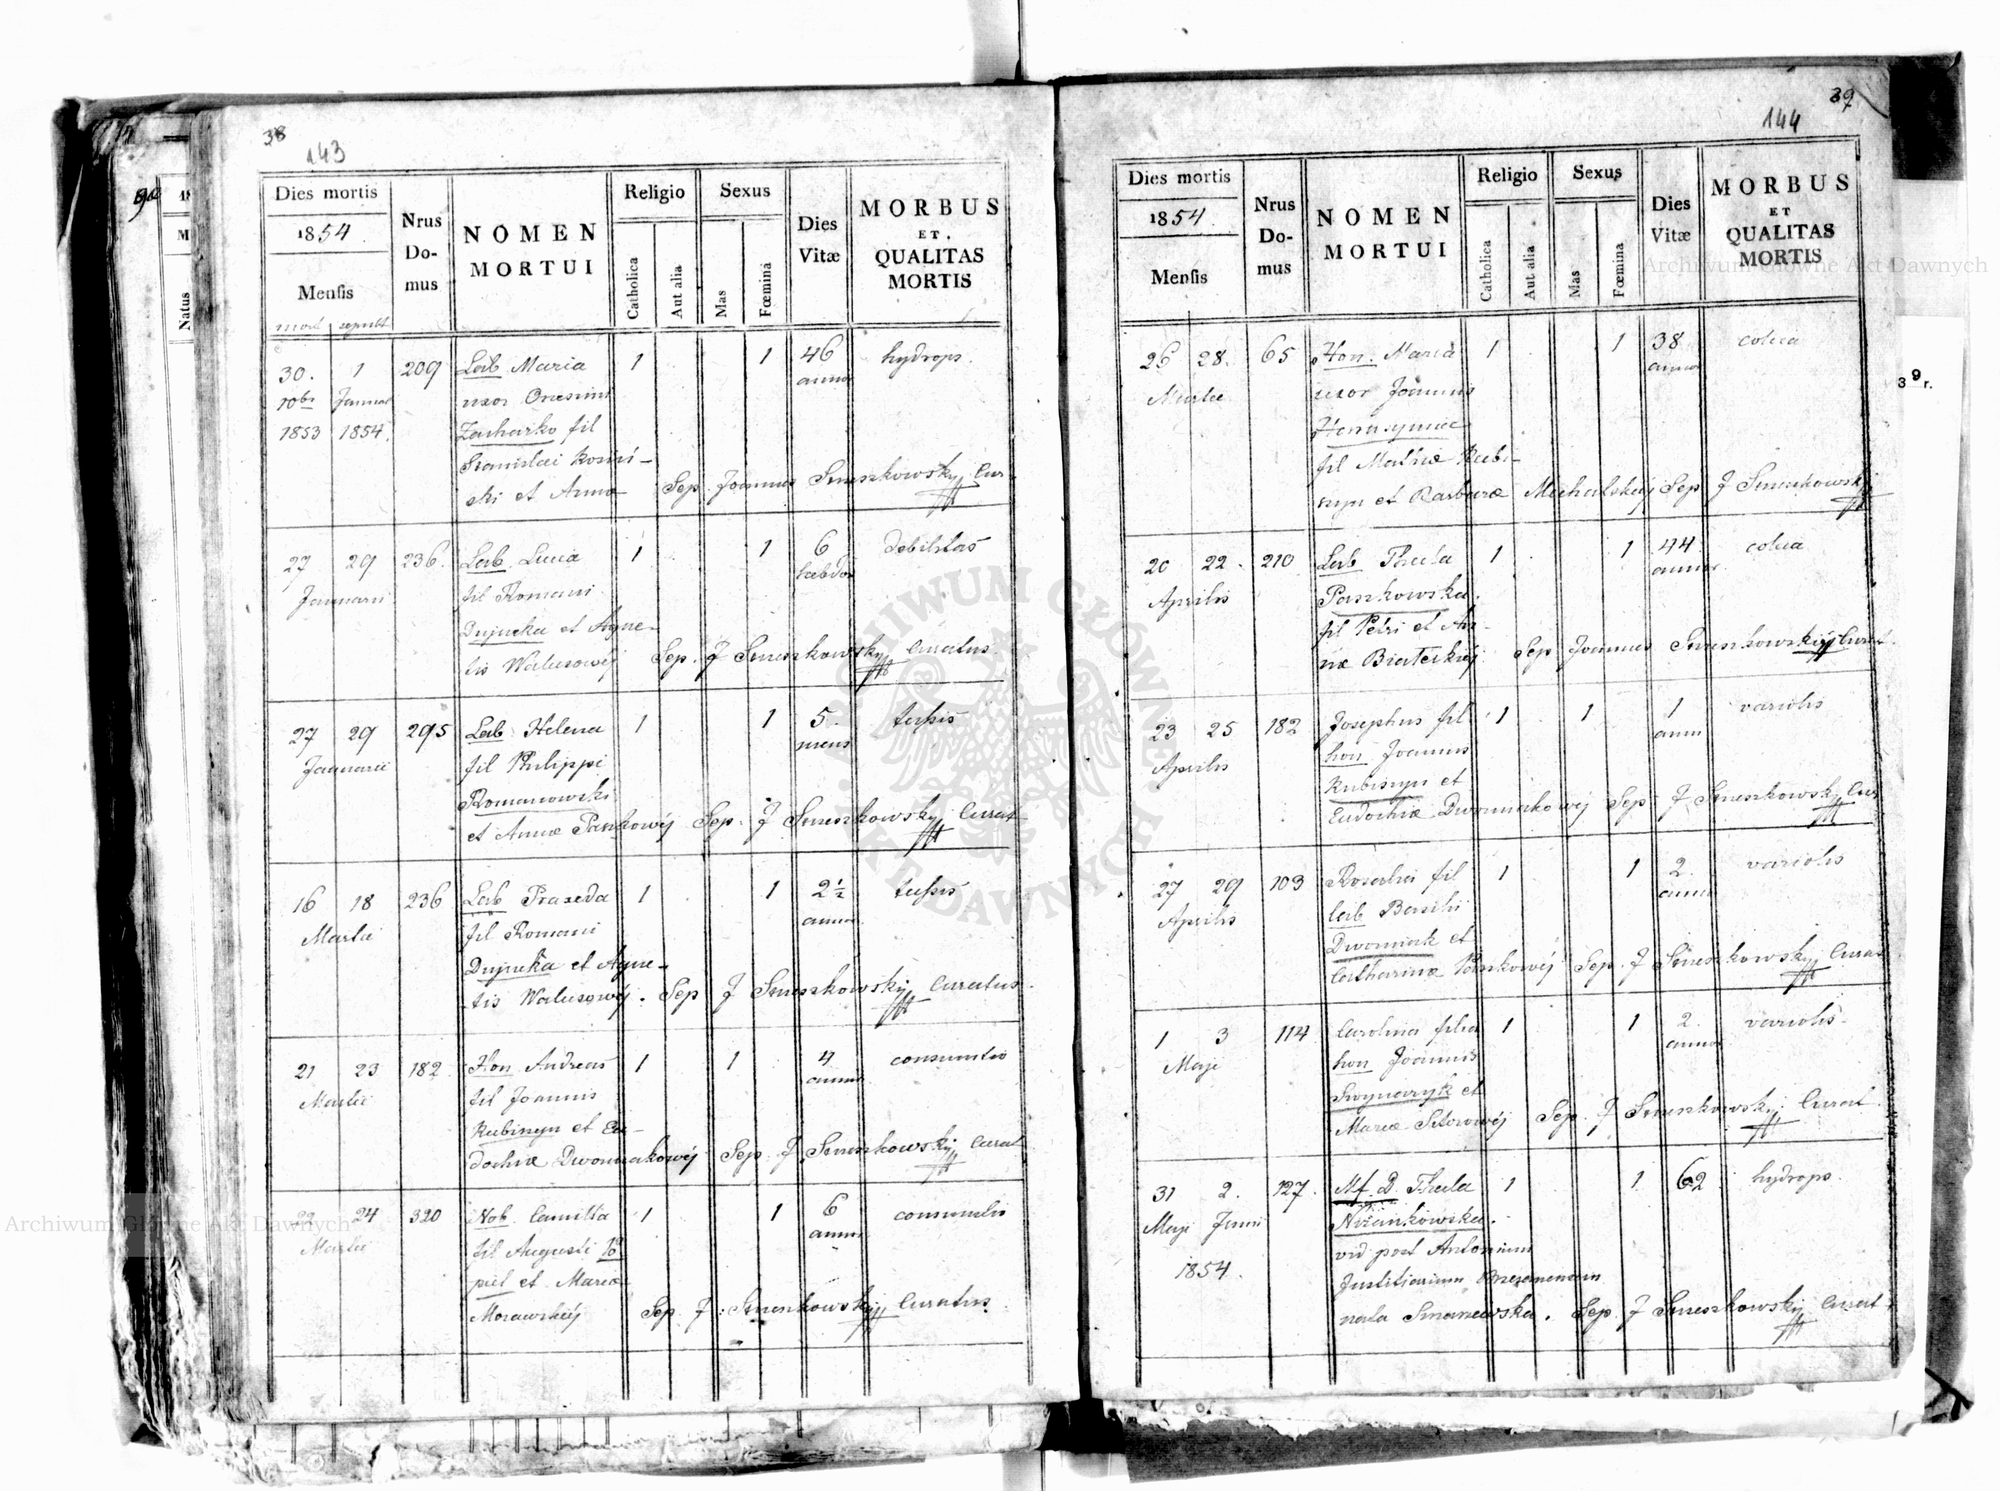 38
143
Dies mortis
1854.
Mensis
mort sepult
Nrus Do-mus
NOMEN MORTUI
Religio
Catholica
Aut alia
Sexus
Mas
Fœmina
Dies Vitæ
MORBUS ET QUALITAS MORTIS
30. 1 209 Lab Maria 1 1 46 hydrops.
10bris Januar uxor Onesimi annor
1853 1854. Zacharko fil
Stanislai
ski et Annæ Sep. Joannes Smerzkowsky Cur.
27 29 236. Lab. Lucia 1 1 6 debilitas
Januarii fil Romani hebdom
Dujucka et Agne-
tis Walusowéj Sep. J Smerzkowsky Curatus.
27 29 295 Lab. Helena 1 1 5. tussis
Januarii fil Philippi mens
Romanowski
et Annæ Pankowéj Sep. J Smerzkowsky Curat
16 18 236 Lab Praxeda 1 1 2½ tussis
Martii fil Romani annor
Dujucka et Agne-
tis Walusowéj. Sep J Smerzkowsky Curatus.
21 23 182. Hon Andreas 1 1 4 consumtio
Martii fil Joannis annor
Kubisyn et Eu-
dochiæ Dwornakowéj Sep. J. Smerzkowsky Curat
22 24 320 Nob. Camilla 1 1 6 consumtio
Martii fil Augusti annor
et Mariæ
Morawskiéj Sep. J. Smerzkowsky Curatus.
39
144
Dies mortis
1854.
Mensis
Nrus Do-mus
NOMEN MORTUI
Religio
Catholica
Aut alia
Sexus
Mas
Fœmina
Dies Vitæ
MORBUS ET QUALITAS MORTIS
26 28. 65 Hon. Maria 1 1 38 colica
Martii uxor Joannis annor
Harasymiec
fil Mathiæ Kubi-
syn et Barbaræ Michalskiéj Sep J Smerzkowsky
20 22. 210 Lab Thecla 1 1 44 colica
Aprilis Paszkowska. annor
fil Petri et An-
næ Białeckiéj Sep Joannes Smerzkowsky Curat.
23 25 182 Josephus fil 1 1 1 variolis
Aprilis hon Joannis anni
Kubisyn et
Eudochiæ Dwornakowéj Sep. J Smerzkowsky Cur
27 29 103 Rosalia fil 1 1 2. variolis
Aprilis lab Basilii annor
Dworniak et
Catharinæ Pankowéj Sep. J Smerzkowsky Curat.
1 3 114 Carolina filia 1 1 2. variolis.
Maji hon Joannis annor
et
Mariæ Sep. J Smerzkowsky Curat.
31 2. 127. Mf. D. Thecla 1 1 62 hydrops.
Maji Junii Niżankowska.
1854. vid post Antonium
Justitiarium
nata Smarzewska. Sep. J Smerzkowsky Curat.
39r.
Archiwum Główne Akt Dawnych
Archiwum Główne Akt Dawnych
ARCHIWUM GŁÓWNE AKT DAWNYCH